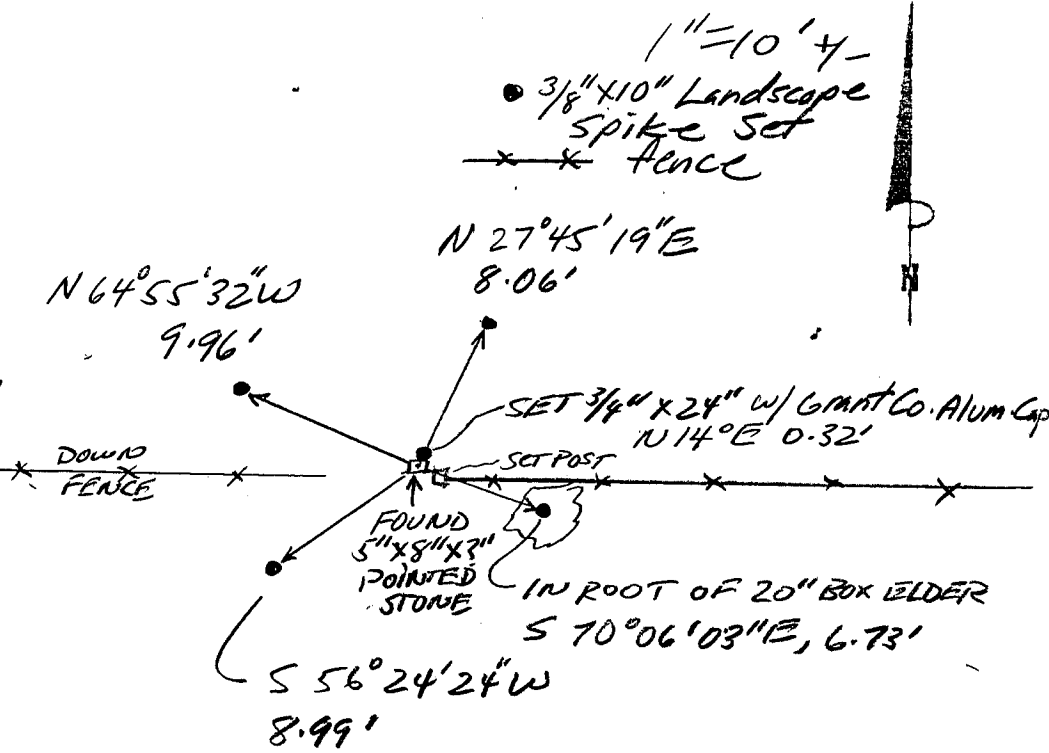 1"=10' +/-
3/8"X10" Landscape
Spike Set
fence
N
N 27°45'19"E
8.06'
N 64°55'32"W
9.96'
SET 3/4" X 24" W/ Grant Co. Alum. Cap
N 14°E 0.32'
SET POST
DOWN
FENCE
FOUND
5"X8"X3"
POINTED
STONE
IN ROOT OF 20" BOX ELDER
S 70°06'03"E, 6.73'
S 56°24'24"W
8.99'